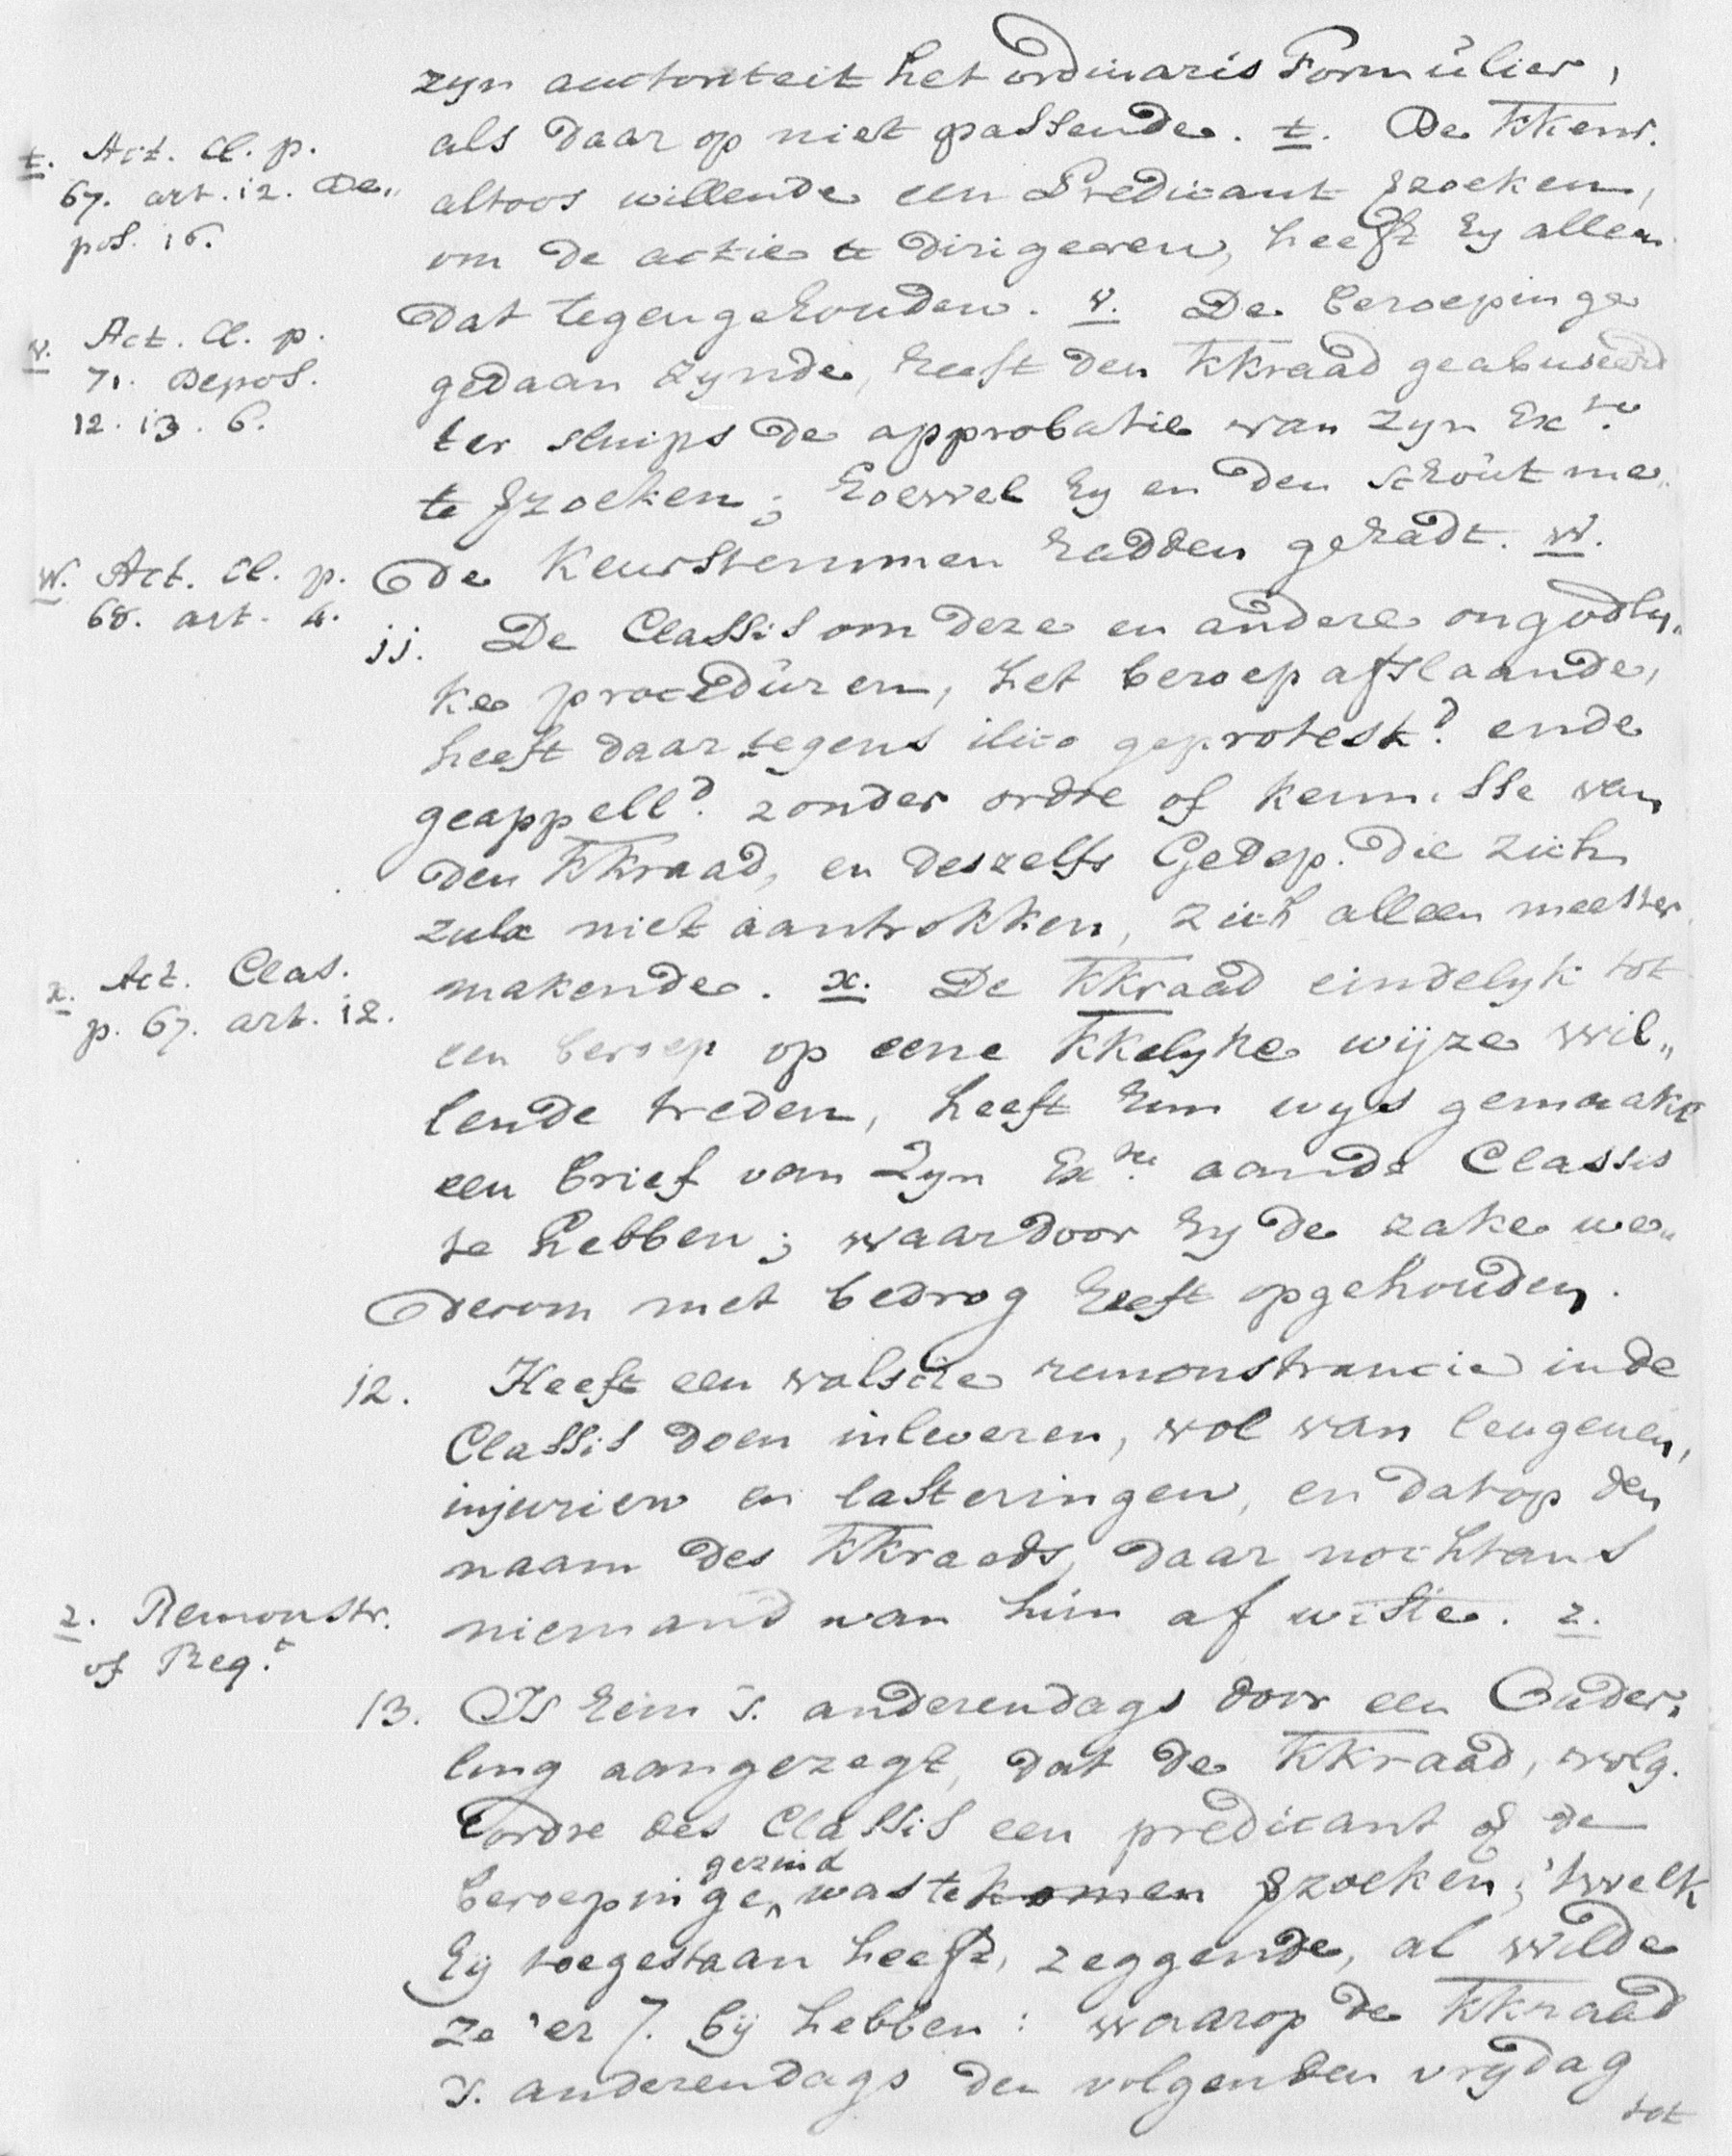 zyn auctoriteit het ordinaris Formülier,
als daar op niet passende. t. De KKenr.
t. Act. Cl. p.
67. art. 12. De„
pos. 16.
altoos willende een Predicant zoeken,
om de actie te dirigeeren, heeft hy alleen
dat tegengehouden. v. De beroepinge
v. Act. Cl. p.
71. Depos.
12. 13. 6.
gedaan zynde, heeft den KKraad geabuseerd
ter sluips de approbatie van zyn Extie.
te zoeken; hoewel hy en den schoùt me„
de Keurstemmen hadden gehadt. w.
w. Act. Cl. p.
68. art. 4.
jj. De Classis om deze en andere ongodly„
ke procedùren, het beroep afslaande,
heeft daar tegens ilico geprotestd. ende
geappelld. zonder ordre of kennisse van
den KKraad, en deszelfs Gedep. die zich
zulx niet aantrokken, zich alleen meester
makende. x. De KKraad eindelyk tot
x. Act. Clas.
p. 67. art. 12.
een beroep op eene KKelyke wijze wil„
lende treden, heeft hun wys gemaakt
een brief van Zyn Extie. aande Classis
te hebben; waardoor hy de zake we„
derom met bedrog heeft opgehouden.
12. Heeft een valsche remonstrancie in de
Classis doen inleveren, vol van leugenen,
injurien en lasteringen, en dat op den
naam des KKraads, daar nochtans
niemand van hun af wiste. z.
z. Remonstr.
of Reqt.
13. Is hem s. anderendags door een Ouder„
ling aangezegt, dat de KKraad, volg.
ordre des Classis een predicant of de
beroepinge, gezind was te komen zoeken; 'twelk
hij toegestaan heeft, zeggende, al wilde
ze 'er 7. bij hebben: waarop de KKraad
s. anderendags den volgenden vrydag
tot